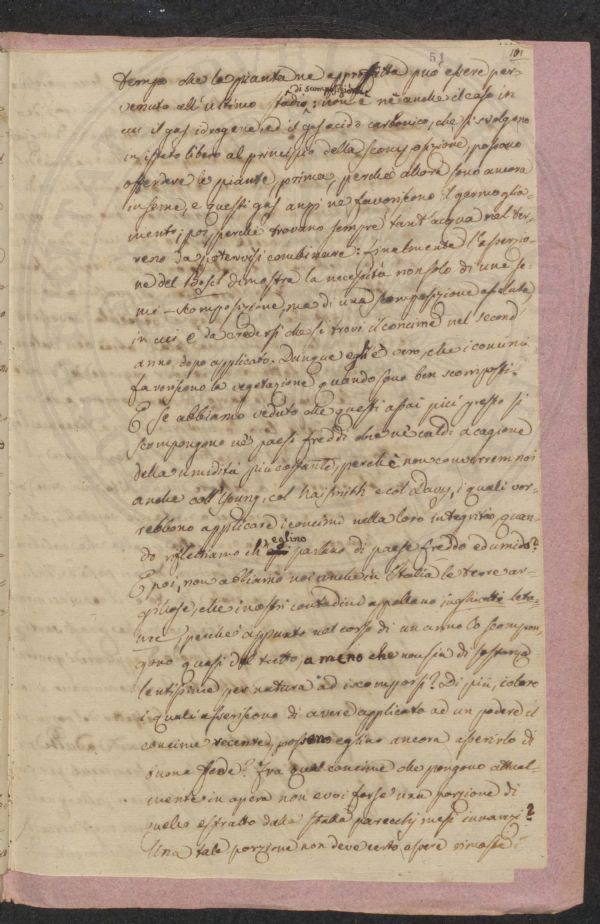 51 101
tempo che le pianta ne approfitta può essere per-
venuto all'ultimo stadio di scomposizione: non è nè anche il caso in
cui il gas idrogene, ed il gas acido carbonico, che si svolgono
in istato libero al principio della scomposizione, possano
offendere le piante, prima, perchè allora sono ancora
insieme, e questi gas anzi ne favoriscono il germoglia-
mento; poi, perchè trovano sempre tant'acqua nel ter-
reno da potervisi combinare: Finalmente l'asserzio-
ne del Bosc dimostra la necessità non solo di una se-
mi-scomposizione, ma di una scomposizione assoluta,
in cui è da credersi che si trovi il concime nel second'
anno dopo applicato. Dunque egli è vero, che i concimi
favoriscono la vegetazione quando sono ben scomposti.
E se abbiamo veduto che questi assai più presto si
scompongono ne' paesi freddi che ne' caldi a cagione
della umidità più costante, perchè non converrem noi
anche coll'Young, col Naismith e col Davy, i quali vor-
rebbono applicare i concimi nella loro integrità, quan-
do riflettiamo ch' eglino parlano di paese freddo ed umido?
E poi, non abbiamo noi anche in Italia le terre ar-
gillose, che i nostri contadini appellano
perchè appunto nel corso di un anno lo scompon-
gono quasi del tutto a meno che non sia di sostanza
lentissima per natura ad iscomporsi? Di più, coloro
i quali asseriscono di avere applicato ad un podere il
concime recente, possono eglino ancora asserirlo di
buona fede? Fra quel concime che pongono attual-
mente in opera non evvi forse una porzione di
quello estratto dalla stalla parecchj mesi innanzi?
Una tale porzione non deve certo essere rimasta